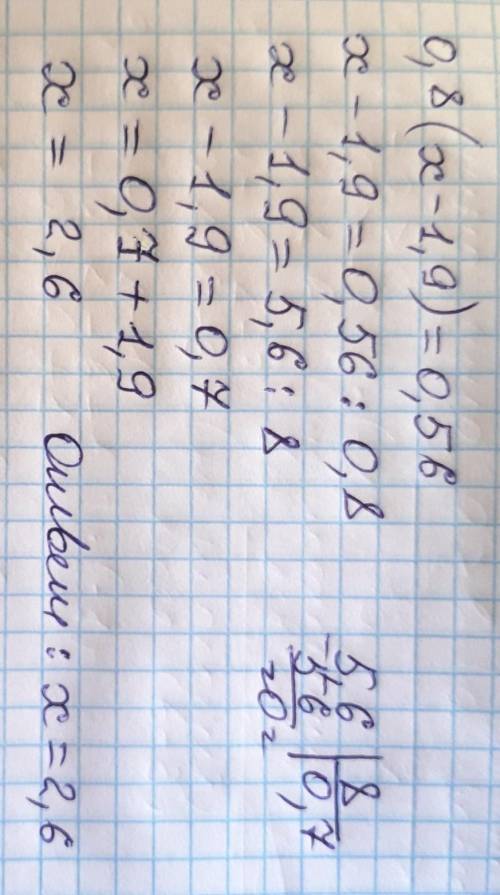 0,8(x-1,9)=0,56
x-1,9=0,56:0,8
x-1,9=5,6:8
x-1,9=0,7
x=0,7+1,9
x=2,6
Ответ: x=2,6
56 | 8
-56 | 0,7
0